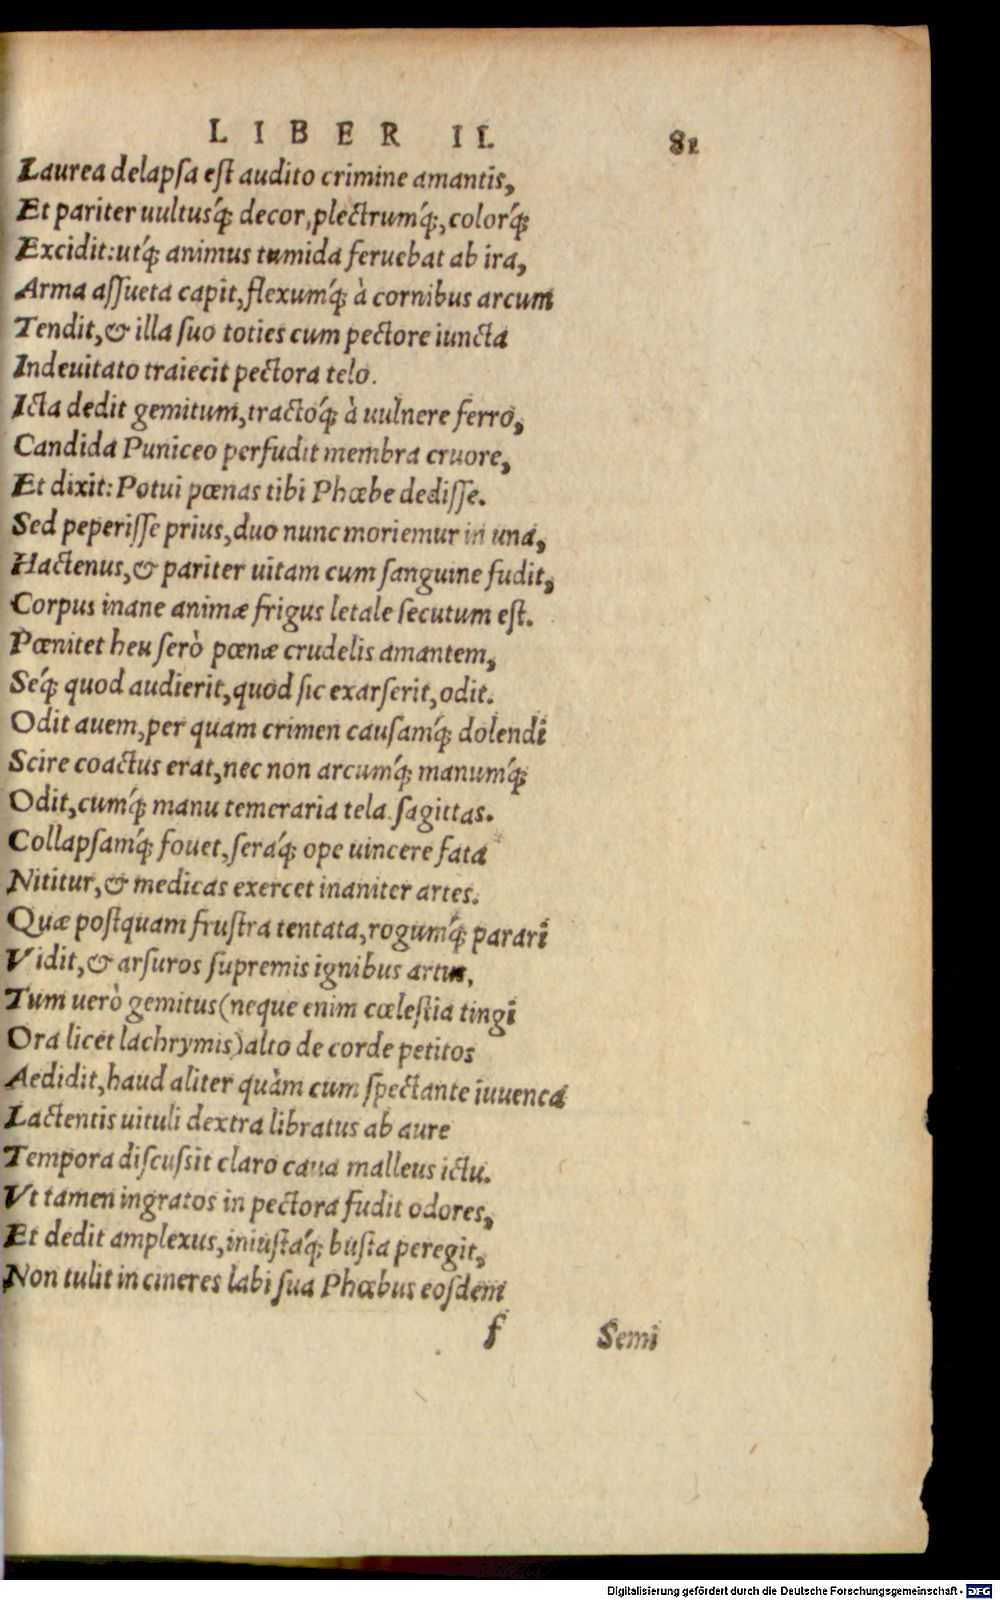 LIBER II. 81
Laurea delapſa eſt audito crimine amantis,
Et pariter uultusq́; decor, plectrumq́;, colorq́;
Excidit: utq́; animus tumida feruebat ab ira,
Arma aſſueta capit, flexumq́; à cornibus arcum
Tendit, & illa ſuo toties cum pectore iuncta
Indeuitato traiecit pectora telo.
Icta dedit gemitum, tractoq́; à uulnere ferro,
Candida Puniceo perfudit membra cruore,
Et dixit: Potui pœnas tibi Phœbe dediſſe.
Sed peperiſſe prius, duo nunc moriemur in una,
Hactenus, & pariter uitam cum ſanguine fudit,
Corpus inane animæ frigus letale ſecutum eſt.
Pœnitet heu ſerò pœnæ crudelis amantem,
Seq́; quod audierit, quod ſic exarſerit, odit.
Odit auem, per quam crimen cauſamq́; dolendi
Scire coactus erat, nec non arcumq́; manumq́;
Odit, cumq́; manu temeraria tela ſagittas.
Collapſamq́; fouet, ſeraq́; ope uincere fata
Nititur, & medicas exercet inaniter artes.
Quæ poſtquam fruſtra tentata, rogumq́; parari
Vidit, & arſuros ſupremis ignibus artus,
Tum uerò gemitus (neque enim cœleſtia tingi
Ora licet lachrymis) alto de corde petitos
Aedidit, haud aliter quàm cum ſpectante iuuenca
Lactentis uituli dextra libratus ab aure
Tempora diſcuſsit claro caua malleus ictu.
Vt tamen ingratos in pectora fudit odores,
Et dedit amplexus, iniuſtaq́; buſta peregit,
Non tulit in cineres labi ſua Phœbus eoſdem
f Semi
Digitalisierung gefördert durch die Deutsche Forschungsgemeinschaft - DFG